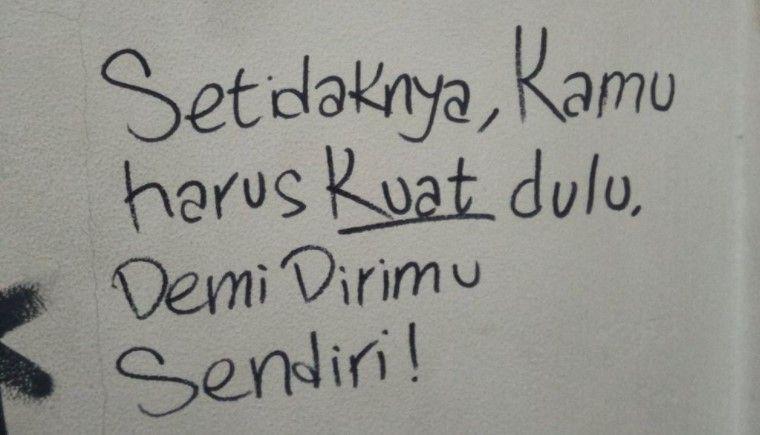 Setidaknya, Kamu
harus Kuat dulu.
Demi Dirimu
Sendiri!